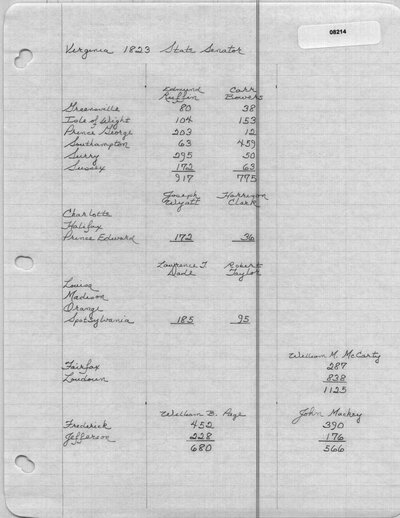 08214
Virginia 1823 State Senator
Edmund Carr
Ruffin Bowers
Greensville 80 38
Isle of Wight 104 153
Prince George 203 12
Southampton 63 459
Surry 295 50
Sussex 172 63
917 775
Joseph Harrison
Wyatt Clark
Charlotte
Halifax
Prince Edward 172 36
Lawrence T. Robert
Dade Taylor
Louisa
Madison
Orange
Spotsylvania 185 95
William M. McCarty
Fairfax 287
Loudoun 838
1125
William B. Page John Mackey
Frederick 452 390
Jefferson 228 176
680 566